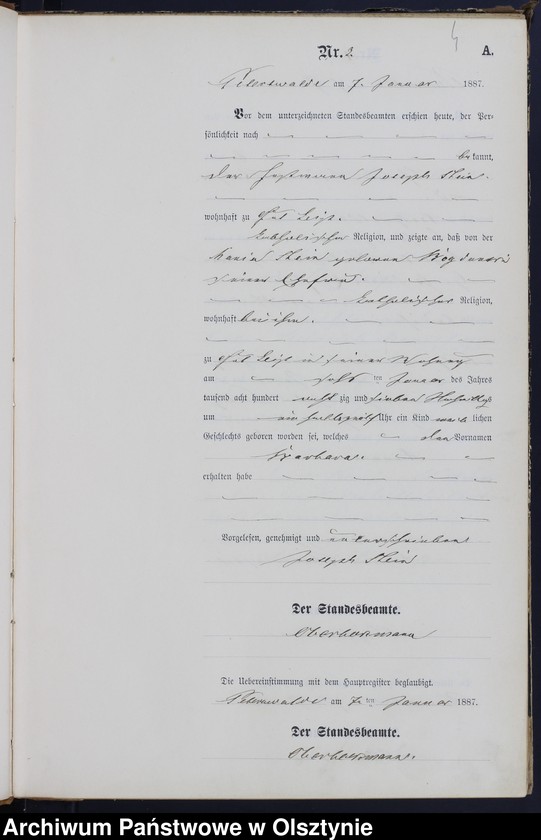 4
Nr. 2
A.
Peterswalde am 7. Januar 1887.
Vor dem unterzeichneten Standesbeamten erschien heute, der Per-
sönlichkeit nach
bekannt,
der Joseph Stein
wohnhaft zu Gut
katholischer Religion, und zeigte an, daß von der
Stein geborenen
seiner Ehefrau
katholischer Religion,
wohnhaft bei ihm.
zu Gut in seiner Wohnung
am ten Januar des Jahres
tausend acht hundert achtzig und sieben Nachmittags
um Uhr ein Kind weiblichen
Geschlechts geboren worden sei, welches den Vornamen
Barbara.
erhalten habe
Vorgelesen, genehmigt und unterschrieben
Joseph Stein
Der Standesbeamte.
Die Uebereinstimmung mit dem Hauptregister beglaubigt.
Peterswalde am 7. ten Januar 1887.
Der Standesbeamte.
Archiwum Państwowe w Olsztynie